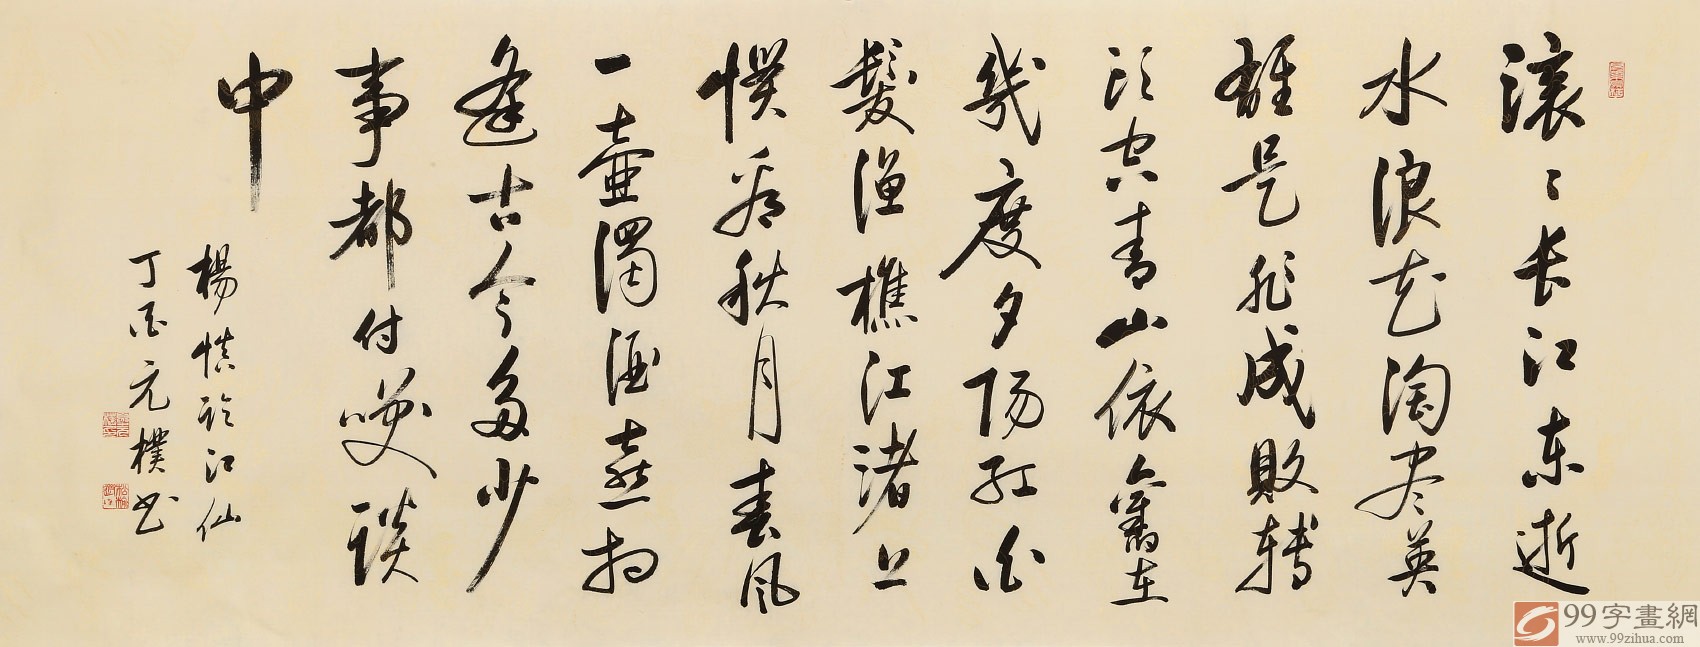 滚〻长江东逝
水浪花淘尽英
雄是非成败转
头空青山依旧在
几度夕阳红白
发渔樵江渚上
惯看秋月春风
一壶浊酒喜相
逢古今多少
事都付笑谈
中
杨慎临江仙
丁酉元朴书
99字畫網
www.99zihua.com